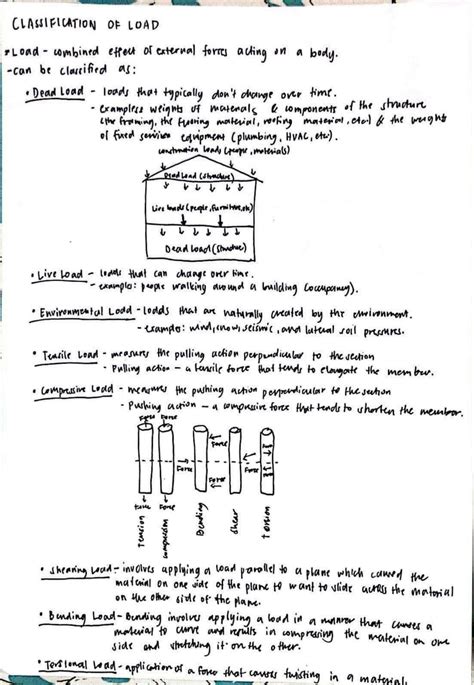 CLASSIFICATION OF LOAD
• Load - combined effect of external forces acting on a body.
- can be classified as:
• Dead Load - loads that typically don't change over time.
- examples: weights of materials & components of the structure
(the framing, the flooring material, roofing material, etc.) & the weights
of fixed service equipment (plumbing, HVAC, etc).
construction loads (people, materials)
Dead Load (structure)
Live loads (people, furniture, etc)
Dead Load (structure)
• Live Load - loads that can change over time.
- example: people walking around a building (occupancy).
• Environmental Load - loads that are naturally created by the environment.
- example: wind, snow, seismic, and lateral soil pressures.
• Tensile Load - measures the pulling action perpendicular to the section
- Pulling action - a tensile force that tends to elongate the member.
• Compressive Load - measures the pushing action perpendicular to the section
- Pushing action - a compressive force that tends to shorten the member.
Force Force
Force Force Force
Force Force
Force Force
Tension
compression
Bending
shear
torsion
• Shearing Load - involves applying a load parallel to a plane which caused the
material on one side of the plane to want to slide across the material
on the other side of the plane.
• Bending Load - Bending involves applying a load in a manner that causes a
material to curve and results in compressing the material on one
side and stretching it on the other.
• Torsional Load - application of a force that causes twisting in a material.